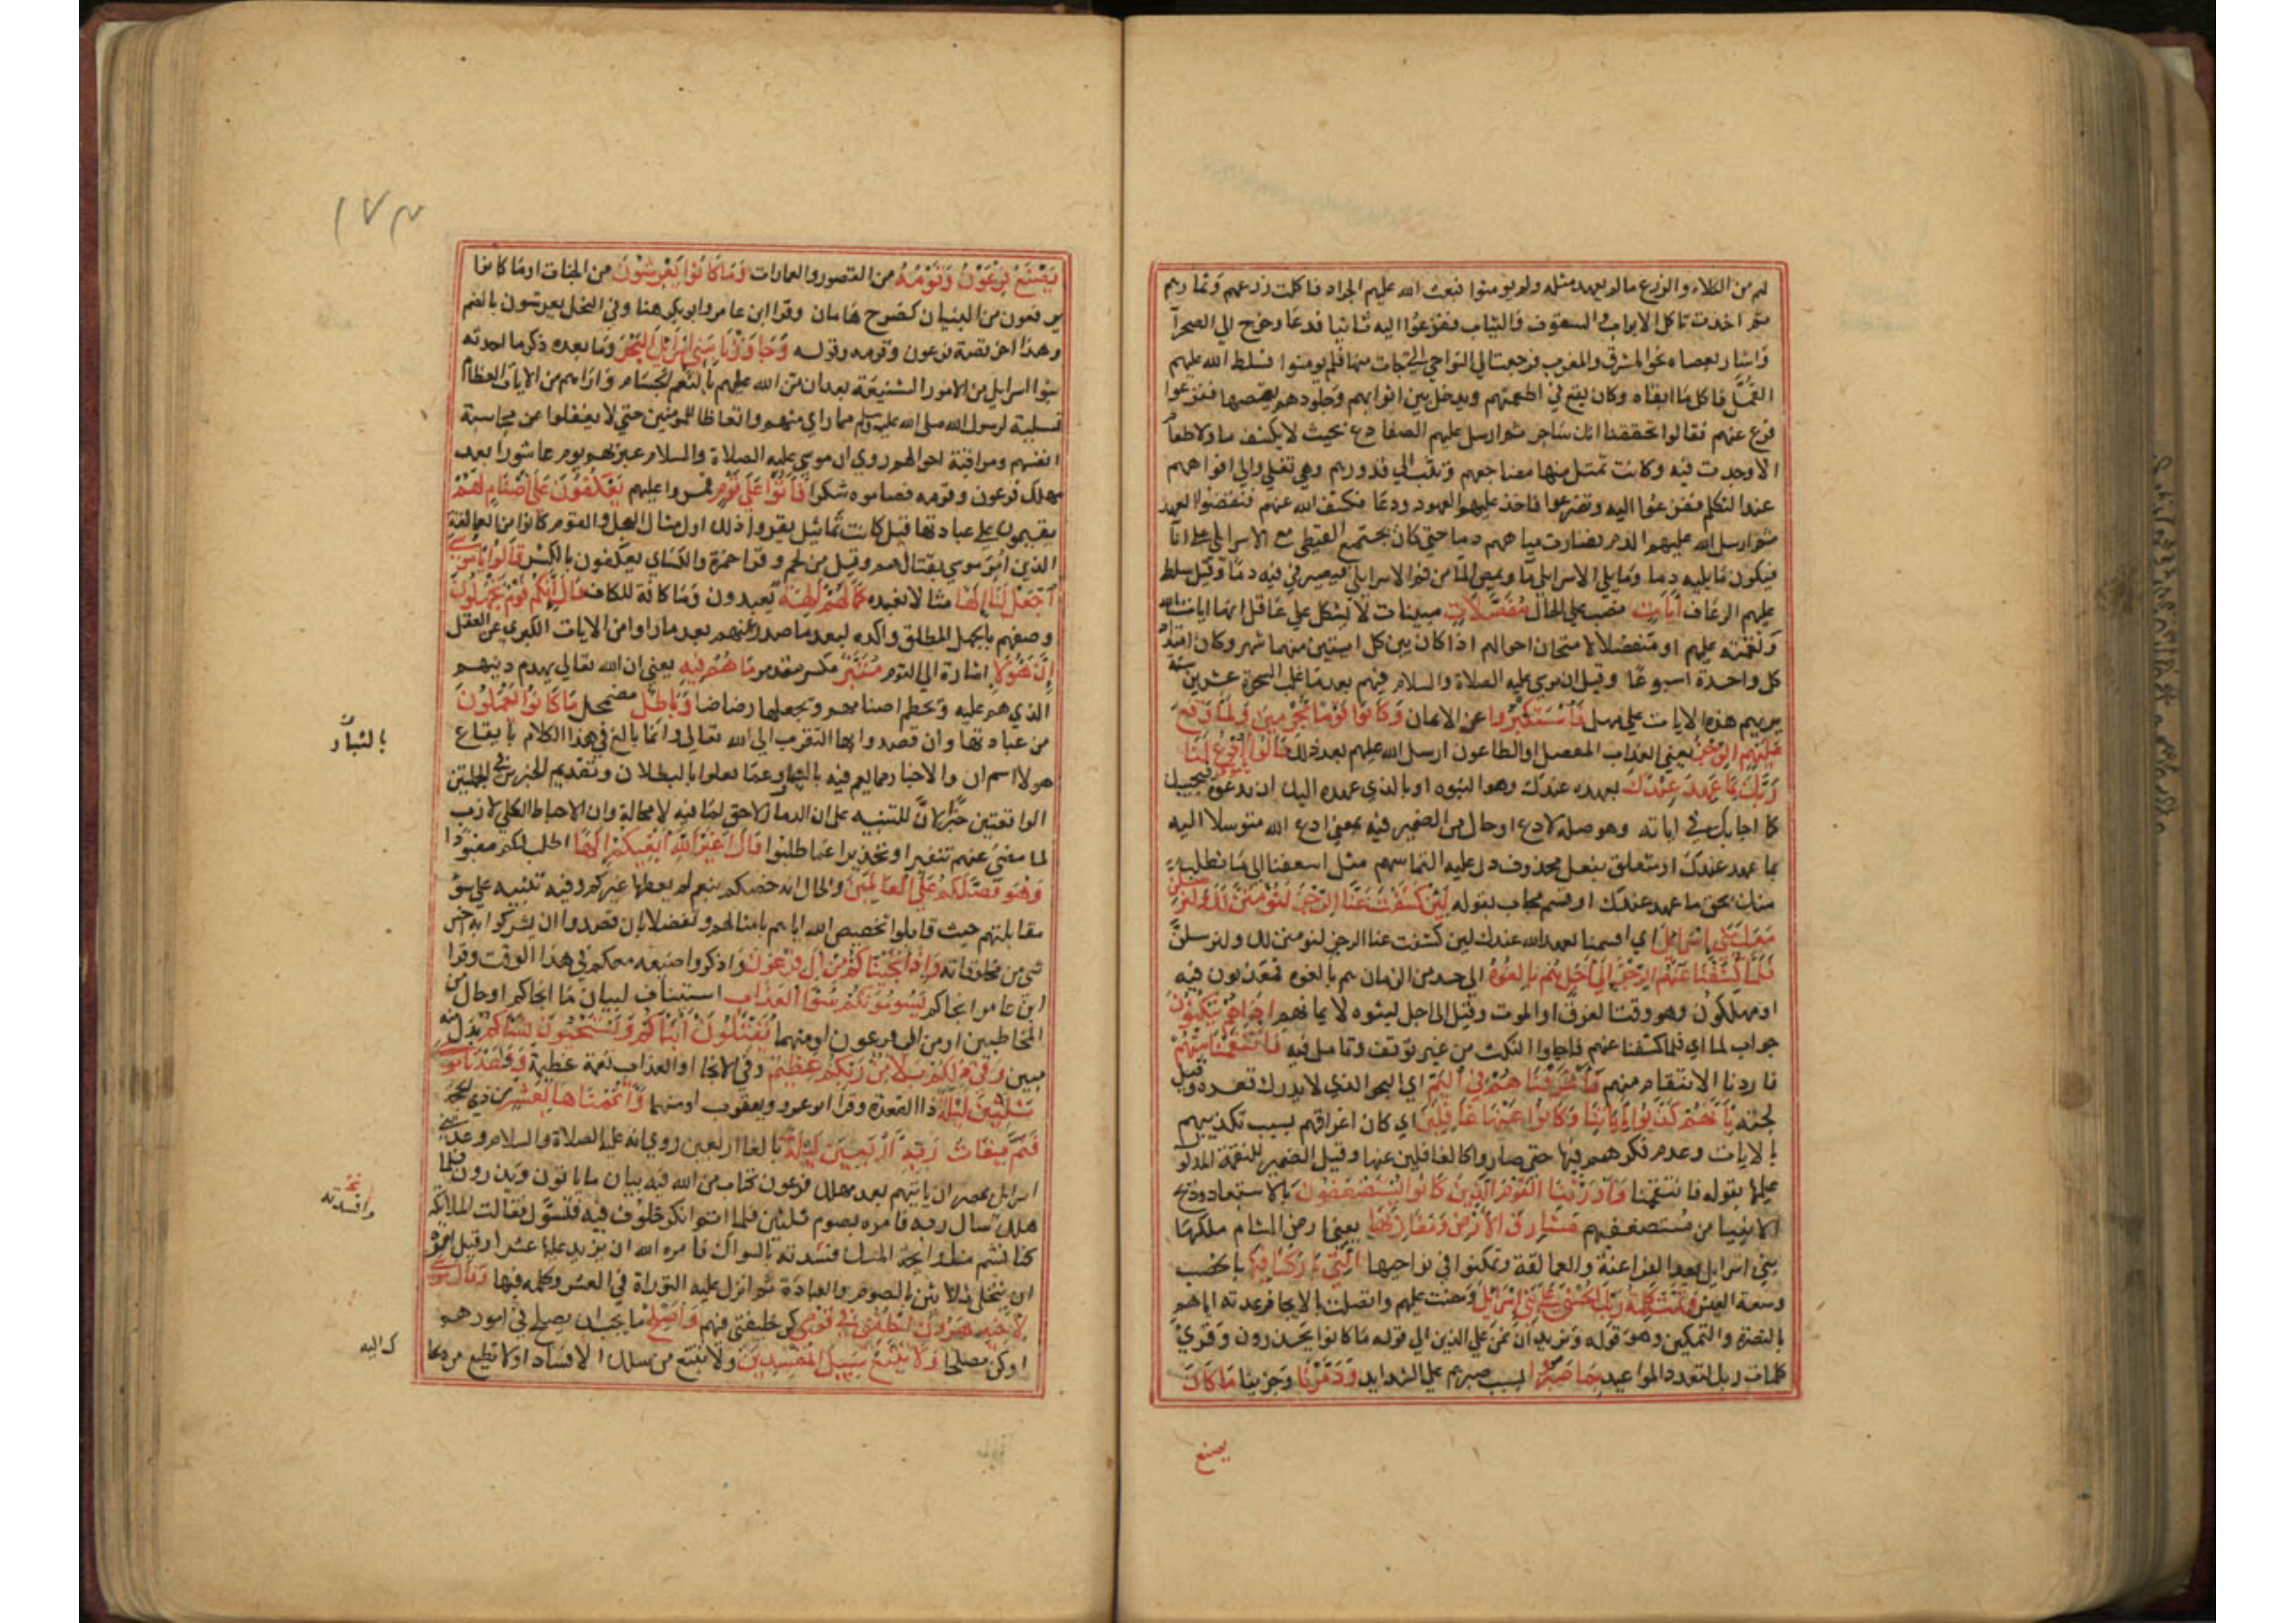 لهم من الكلاء والزرع مالم يعهد مثله ولم يومنوا فبعث الله عليهم الجراد فاكلت زرعهم وثمارهم
ثم اخذت تاكل الابواب والسقوف والثياب ففزعوا اليه ثانيا فدعا وخرج الي الصحرآ
واشار بعصاه نحو المشرق والمغرب فرجعت الي النواحي التي جات منها فلم يومنوا فسلط الله عليهم
القمل فاكل ما ابقاه وكان يقع في اطعمتهم ويدخل بين اثوابهم وجلودهم فيمصها ففزعوا
فرفع عنهم فقالوا تحققنا انك ساحر ثم ارسل عليهم الضفادع بحيث لا يكشف ما ولا طعام
الا وجدت فيه وكانت تمتلئ منها مضاجعهم وتثب الي قدورهم وهي تغلي والي افواههم
عند التكلم ففزعوا اليه وتضرعوا فاخذ عليهم العهود ودعا فكشف الله عنهم فنقضوا العهد
ثم ارسل الله عليهم الدم فصارت مياههم دما حتي كان يجتمع القبطي مع الاسرايلي علي اناء
فيكون ما يليه دما وما يلي الاسرايلي مآ ويمص المآ من فم الاسرايلي فيصير في فيه دما وقيل سلط
عليهم الرعاف آيات نصب علي الحال مفصلات مبينات لا تشكل علي عاقل انها ايات الله
ونقمته عليهم او مفصلا لامتحان احوالهم اذ كان بين كل ايتين منهما شهر وكان امتداد
كل واحدة اسبوعا وقيل ان موسي عليه الصلاة والسلام لبث فيهم بعد ما غلب السحرة عشرين سنة
يريهم هذه الايات علي مهل فاستكبروا عن الايمان وكانوا قوما مجرمين ولما وقع
عليهم الرجز يعني العذاب المفصل او الطاعون ارسل الله عليهم بعد ذلك قالوا يا موسي ادع لنا
ربك بما عهد عندك بعهده عندك وهو النبوه او بالذي عهده اليك ان تدعوه فيجيبك
كما اجابك في اياته وهو صله لادع او حال من الضمير فيه بمعني ادع الله متوسلا اليه
بما عهد عندك او متعلق بفعل محذوف دل عليه التماسهم مثل اسعفنا الي ما نطلب
منك بحق ما عهد عندك او قسم مجاب بقوله لئن كشفت عنا الرجز لنؤمنن لك ولنرسلن
معك بني اسرايل اي اقسمنا بعهد الله عندك لين كشفت عنا الرجز لنومنن لك ولنرسلن
فلما كشفنا عنهم الرجز الي اجل هم بالغوه الي حد من الزمان هم بالغوه فمعذبون فيه
او مهلكون وهو وقت الغرق او الموت وقيل الي اجل عينوه لايمانهم اذا هم ينكثون
جواب لما اي فلما كشفنا عنهم فاجاوا النكث من غير توقف وتامل فيه فانتقمنا منهم
فاردنا الانتقام منهم فاغرقناهم في اليم اي البحر الذي لا يدرك قعره وقيل
لجته بانهم كذبوا باياتنا وكانوا عنها غافلين اي كان اغراقهم بسبب تكذيبهم
بالايات وعدم فكرهم فيها حتي صاروا كالغافلين عنها وقيل الضمير للنقمة المدلو
عليها بقوله فانتقمنا واورثنا القوم الذين كانوا يستضعفون بالاستعباد وذبح
الابنيا من مستضعفيهم مشارق الارض ومغاربها يعني ارض الشام ملكها
بني اسرايل بعد الفراعنة والعمالقة وتمكنوا في نواحيها التي باركنا فيها بالخصب
وسعة العيش وتمت كلمة ربك الحسني علي بني اسرايل ومضت عليهم واتصلت بالانجاز عدته اياهم
بالنصرة والتمكين وهو قوله ونريد ان نمن علي الذين الي قوله ما كانوا يحذرون وقرئ
كلمات ربك لتعدد المواعيد بما صبروا بسبب صبرهم علي الشدايد ودمرنا وخربنا ما كان
يصنع
١٧٣
يصنع فرعون وقومه من القصور والعمارات وما كانوا يعرشون من الجنات او ما كانوا
يرفعون من البنيان كصرح هامان وقرا ابن عامر وابوبكر هنا وفي النحل يعرشون بالضم
وهذا اخر قصة فرعون وقومه وقوله وجاوزنا ببني اسرايل البحر وما بعده ذكر ما احدثه
بنوا اسرايل من الامور الشنيعة بعد ان من الله عليهم بالنعم الجسام واراهم من الايات العظام
تسلية لرسول الله صلي الله عليه وسلم مما راي منهم وايقاظا للمومنين حتي لا يغفلوا عن محاسبة
انفسهم ومراقبة احوالهم روي ان موسي عليه الصلاة والسلام عبر بهم يوم عاشورا بعد
مهلك فرعون وقومه فصاموه شكرا فاتوا علي قوم فمروا عليهم يعكفون علي اصنام لهم
يقيمون علي عبادتها قيل كانت تماثيل بقر وذلك اول شان العجل والقوم كانوا من العمالقة
الذين امر موسي بقتالهم وقيل من لخم وقرا حمزة والكساي يعكفون بالكسر قالوا يا موسي
اجعل لنا الها مثالا نعبده كما لهم الهة يعبدون وما كافة للكاف قال انكم قوم تجهلون
وصفهم بالجهل المطلق واكده لبعد ما صدر عنهم بعد ما راوا من الايات الكبري عن العقل
ان هؤلاء اشارة الي القوم متبر مكسر مدمر ما هم فيه يعني ان الله تعالي يهدم دينهم
الذي هم عليه ويحطم اصنامهم ويجعلها رضاضا وباطل مضمحل ما كانوا يعملون
من عبادتها وان قصدوا بها التقرب الي الله تعالي وانما بالغ في هذا الكلام بايقاع
هولا اسم ان والاخبار عما هم فيه بالتبار وعما فعلوا بالبطلان وتقديم الخبرين في الجملتين
بالتبار
الواقعتين خبرا لان للتنبيه علي ان الدمار لاحق لما هم فيه لا محالة وان الاحباط الكلي لازب
لما مضي عنهم تنفيرا وتحذيرا عما طلبوا قال اغير الله ابغيكم الها اطلب لكم معبودا
وهو فضلكم علي العالمين والحال انه خصكم بنعم لم يعطها غيركم وفيه تنبيه علي سؤ
مقابلتهم حيث قابلوا تخصيص الله اياهم من امثالهم وتفضلا بان قصدوا ان يشركوا به اخس
شي من مخلوقاته واذ انجيناكم من ال فرعون واذكروا صنيعه معكم في هذا الوقت وقرا
ابن عامر انجاكم يسومونكم سوء العذاب استيناف لبيان ما انجاكم او حال من
المخاطبين او من ال فرعون او منهما يقتلون ابناكم ويستحيون نساكم بدل منه
مبين وفي ذلكم بلاء من ربكم عظيم وفي الانجا او العذاب نعمة عظيمة ووعدنا موسي
ثلثين ليلة ذا القعدة وقرا ابو عمرو ويعقوب ووعدنا واتممناها بعشر من ذي الحجة
فتم ميقات ربه اربعين ليلة بالغا اربعين روي انه عليه الصلاة والسلام وعد بني
اسرايل بمصر ان ياتيهم بعد مهلك فرعون بكتاب من الله فيه بيان ما ياتون ويذرون فلما
هلك سال ربه فامره بصوم ثلثين فلما اتم انكر خلوف فيه فتسوك فقالت الملائكة
كنا نشم منك رايحة المسك فسدته بالسواك فامره الله ان يزيد عليها عشرا وقيل امره
وافسدته
ان يتخلي ثلاثين بالصوم والعبادة ثم انزل عليه التوراة في العشر وكلمه فيها وقال موسي
لاخيه هرون اخلفني في قومي كن خليفتي فيهم واصلح ما يجب ان يصلح في امورهم
او كن مصلحا ولا تتبع سبيل المفسدين ولا تتبع من سلك الافساد اولا تطع من دعا
ك اليه